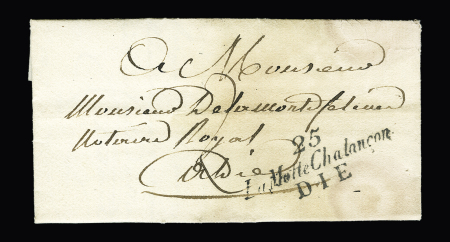 A Monsieur
Monsieur
Notaire Royal
25
à Die
La Motte Chalançon
DIE